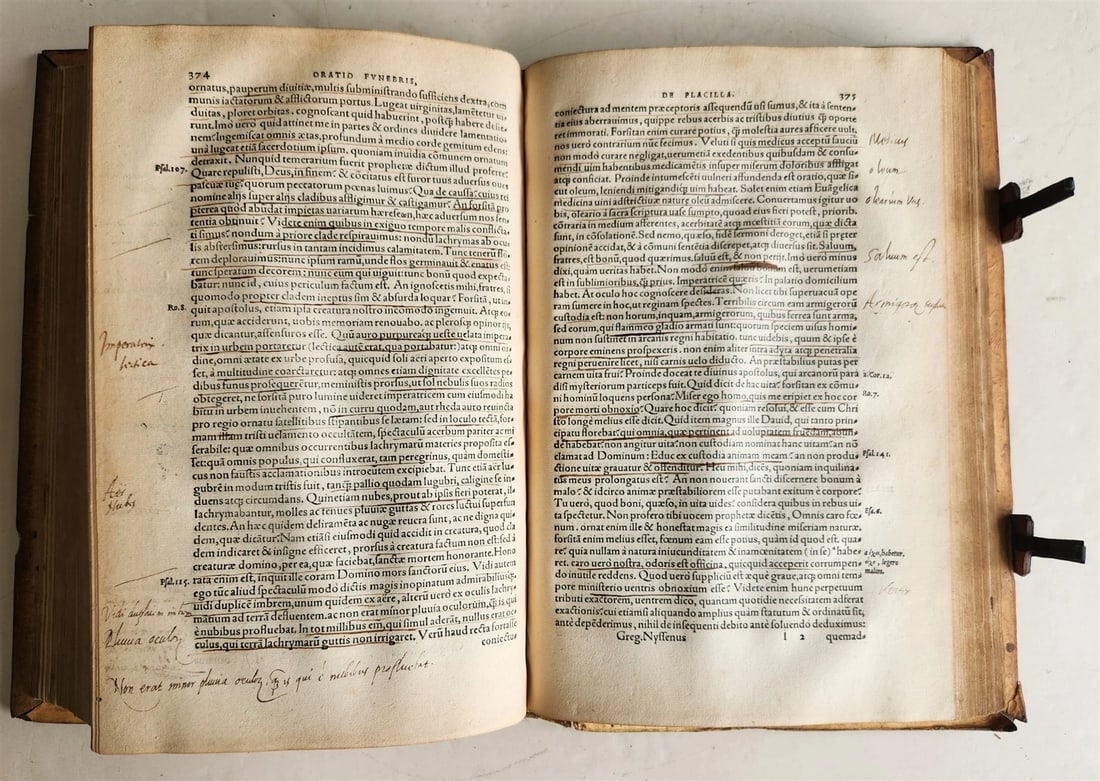 374
ORATIO FVNEBRIS,
ornatus, pauperum diuitiæ, multis subministrando sufficiens dextra, com
munis iactatorum & afflictorum portus. Lugeat virginitas, lamētetur ui-
duitas, ploret orbitas. cognoscant quid habuerint, postq̃ habere desie-
runt. Imo uero quid attinet me in partes & ordines diuidere lamentatio-
nem? Ingemiscat omnis ætas, profundā à medio corde gemitum edens:
unà lugeat etiā sacerdotium ipsum. quoniam inuidia cōmunem ornatum
detraxit. Nunquid temerarium fuerit prophetæ dictum illud proferre?
Psal. 107.
Quare repulisti, Deus, in finem? & cōcitatus est furor tuus aduersus oues
pascuæ tuę? quorum peccatorum pœnas luimus? Qua de caussa
nominē alijs super alijs cladibus affligimur & castigamur? An forsitā pro
pterea quod abundat impietas variarum hæreseωn, hæc aduersum nos sen-
tentia obtinuit? Videte enim quibus in exiguo tempore malis conflicta
ti simus? nondum à priore clade respirauimus: nondū lachrymas ab ocu
lis abstersimus: rursus in tantam incidimus calamitatem. Tunc tenerū flo-
rem deplorauimus: nunc ipsum ramū, unde flos germinauit & enatus est:
tunc speratum decorem: nunc eum qui uiguit: tunc bonū quod expecta-
batur: nunc id, cuius periculum factum est. An ignoscetis mihi, fratres, si
quomodo propter cladem ineptus sim & absurda loquar? Forsitā, ut in-
Ro. 8.
quit apostolus, etiam ipsa creatura nostro incōmodo ingemuit. Atq; eo-
rum, quæ acciderunt, uobis memoriam renouabo. ac plerosq; opinor ijs,
quæ dicantur, assensuros esse. Quū auro purpureaq; ueste uelata impera-
trix in urbem portaretur (lectica autē erat, qua portabatur:) atq; omni or-
Imperatrix
lectica
dine, omni ætate ex urbe profusa, quicquid soli aëri aperto expositum es
set, à multitudine coarctaretur: atq; omnes etiam dignitate excellētes pe
dibus funus prosequerētur, meministis prorsus, ut sol nebulis suos radios
obtegeret, ne forsitā puro lumine uideret imperatricem cum eiusmodi ha
bitu in urbem inuehentem, nō in curru quodam, aut rheda auro reuincta
pro regio ornatu satellitibus stipantibus se iactantem: sed in loculo tectā, for-
mam illam tristi uelamento occultātem, spectaculū acerbum pariter ac mi
serabile: quæ omnibus occurrentibus lachrymarū materies proposita es-
set: quā omnis populus, qui confluxerat, tam peregrinus, quàm domesti-
cus non faustis acclamationibus introeuntem excipiebat. Tunc etiā aër lu-
gubrē in modum tristis fuit, tanq̃ pallio quodam lugubri, caligine se in-
Aër
duens atq; circumdans. Quinetiam nubes, prout ab ipsis fieri poterat, il-
nubes
lachrymabantur, molles ac tenues pluuiæ guttas & rores luctui superfun
dentes. An hæc quidem deliramēta ac nugæ reuera sunt, ac ne digna qui-
dem, quæ dicātur? Nam etiāsi eiusmodi quid accidit in creatura, quod cla
dem indicaret & insigne efficeret, prorsus à creatura factum non est: sed à
creaturæ domino, per ea, quæ faciebat, sanctæ mortem honorante. Hono
Psal. 115.
rata enim est, inquit ille coram Domino mors sanctorū eius. Vidi autem
ego tūc aliud spectaculū modo dictis magis inopinatum admirabiliusq;.
uidi duplicē imbrem, unum quidem ex aëre, alterū uero ex oculis lachry-
matium ad terrā desluentem. ac non erat minor pluuia oculorum, q̃ is qui
è nubibus profluebat. In tot millibus em, qui simul aderāt, nullus erat ocu
culus, qui terrā lachrymarū guttis non irrigaret. Verū haud recta fortasse
coniectu-
Pluuia oculorum
Non erat minor pluuia oculorum, q̃ is qui è nubibus profluebat.
DE PLACILLA.
375
coniectura ad mentem præceptoris assequendū usi sumus, & ita à senten-
tia eius aberrauimus, quippe rebus acerbis ac tristibus diutius q̃ oporte
ret immorati. Forsitan enim curare potius, q̃ molestia aures afficere uult.
nos uero contrarium nūc fecimus. Veluti si quis medicus acceptū sauciū
Medicus
non modo curare negligat, uerumetiā exedentibus quibusdam & consu-
mendi uim habentibus medicamētis insuper miserum doloribus affligat
oleum.
atq; conficiat. Proinde intumescēti vulneri affundenda est oratio, quæ si-
cut oleum, leniendi mitigandiq; uim habeat. Solet enim etiam Euāgelica
medicina uini adstrictiuæ naturæ oleū admiscere. Conuertamus igitur uo
olearium Vas.
bis, oleario à sacra scriptura uase sumpto, quoad eius fieri potest, priorib.
contraria in medium afferentes, acerbitatē atq; mœstitiā eorum, quæ dicta
sunt, in cōsolationē. Sed nemo, quæso, fidē sermoni deroget, etiā si præter
opinionē accidat, & à cōmuni sentētia discrepet, atq; diuersus sit. Saluum,
fratres, est bonū, quod quærimus. saluū est, & non perijt. Imo uero minus
Saluum est.
dixi, quàm ueritas habet. Non modo enim saluū bonum est, uerumetiam
est in sublimioribus, q̃ prius. Imperatricē quæris? In palatio domicilium
habet. At oculo hoc cognoscere desideras. Non licet tibi superuacua ope
ram sumere in hoc, ut reginam spectes. Terribilis circum eam armigerorū
custodia est: non horum, inquam, armigerorum, quibus ferrea sunt arma,
sed eorum, qui flammeo gladio armati sunt: quorum speciem uisus homi-
num non sustinet in arcanis regni habitatio. tunc uidebis, quum & ipse è
corpore eminens prospexeris. non enim aliter intra adyta atq; penetralia
regni peruenire licet, nisi carnis uelo diducto. An præstabilius putas per
carnem uita frui? Proinde doceat te diuinus apostolus, qui arcanorū para
2. Cor. 12.
disi mysteriorum particeps fuit. Quid dicit de hac uita? forsitan ex cōmu-
ni hominū loquens persona? Miser ego homo, quis me eripiet ex hoc cor
Ro. 7.
pore morti obnoxio? Quare hoc dicit? quoniam resolui, & esse cum Chri
sto longè melius esse dicit. Quid item magnus ille Dauid, qui tanto prin-
cipatu florebat? qui omnia, quæ pertinent ad voluptatem fruendam, abun-
de habebat? non angitur uita? non custodiam nominat hanc uitam? an nō
clamat ad Dominum: Educ ex custodia animam meam? an non produ-
Psal. 141.
ctione uitæ grauatur & offenditur? Heu mihi, dicēs, quoniam inquilina-
tus meus prolongatus est? An non nouerant sancti discernere bonum à
malo? & idcirco animæ præstabiliorem esse putabant exitum è corpore?
Tu uerò, quod boni, quæso, in uita uides? considera quibus in rebus ui-
ta spectetur. Non profero tibi uocem prophetæ dicētis, Omnis caro fœ-
Esa. 6.
num. ornat enim ille & honestat magis ea similitudine miseriam naturæ.
forsitā enim melius esset, fœnum eam esse potius, quàm id quod est. qua-
re? quia nullam à natura iniucunditatem & inamœnitatem (in se)* habe-
ret. caro uerò nostra, odoris est officina, quicquid acceperit corrumpen-
do inutile reddens. Quod uero suppliciū est æquè graue, atq; omni tem-
pore ministerio uentris obnoxium esse? Videte enim hunc perpetuum
Venter
tributi exactorem, uentrem dico, quantam quotidie necessitatem adferat
exactionis. cui etiamsi aliquando amplius quàm statutum & ordinatū sit,
antè depēderimus, nihil de insequenti debito antè soluendo deduximus:
Greg. Nyssenus
l 2
quemad-